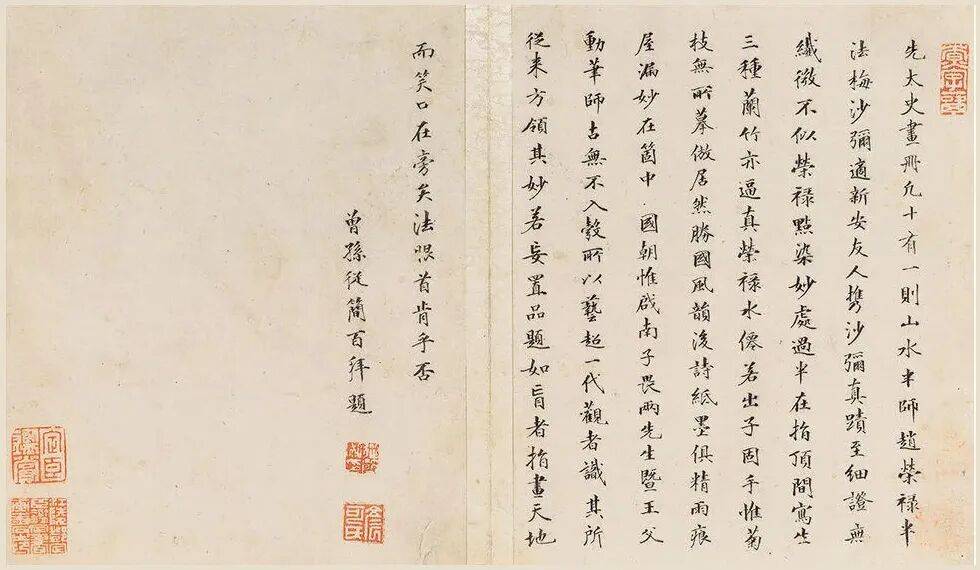 先太史畫冊凡十有一則山水半師趙榮祿半
法梅沙彌適新安友人攜沙彌真蹟至細證無
纖微不似榮祿點染妙處過半在指頂間寫生
三種蘭竹亦逼真榮祿水僊若出子固手惟菊
枝無所摹倣居然勝國風韻後詩紙墨俱精雨痕
屋漏妙在箇中 國朝惟啟南子畏兩先生暨王父
動筆師古無不入彀所以藝超一代觀者識其所
從来方領其妙若妄置品題如盲者指畫天地
而笑口在旁矣法眼首肯乎否
曾孫從簡百拜題